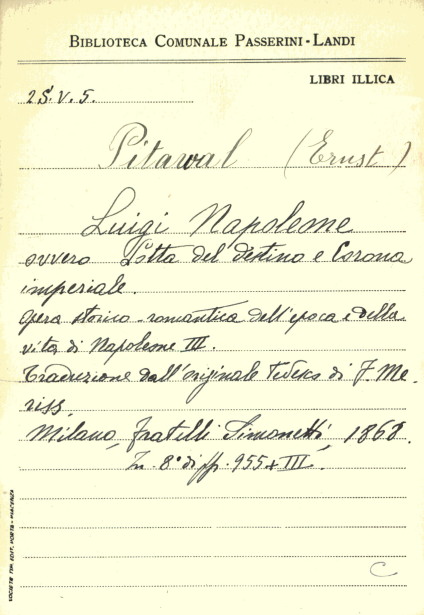 BIBLIOTECA COMUNALE PASSERINI-LANDI
LIBRI ILLICA
2S.V.5.
Pitawal (Ernst)
Luigi Napoleone
ovvero Lotta del destino e Corona
imperiale.
opera storico-romantica dell'epoca e della
vita di Napoleone III.
Traduzione dall'originale tedesco di F. Me-
riss.
Milano, fratelli Simonetti, 1868.
In 8° di pp. 955+III.
C